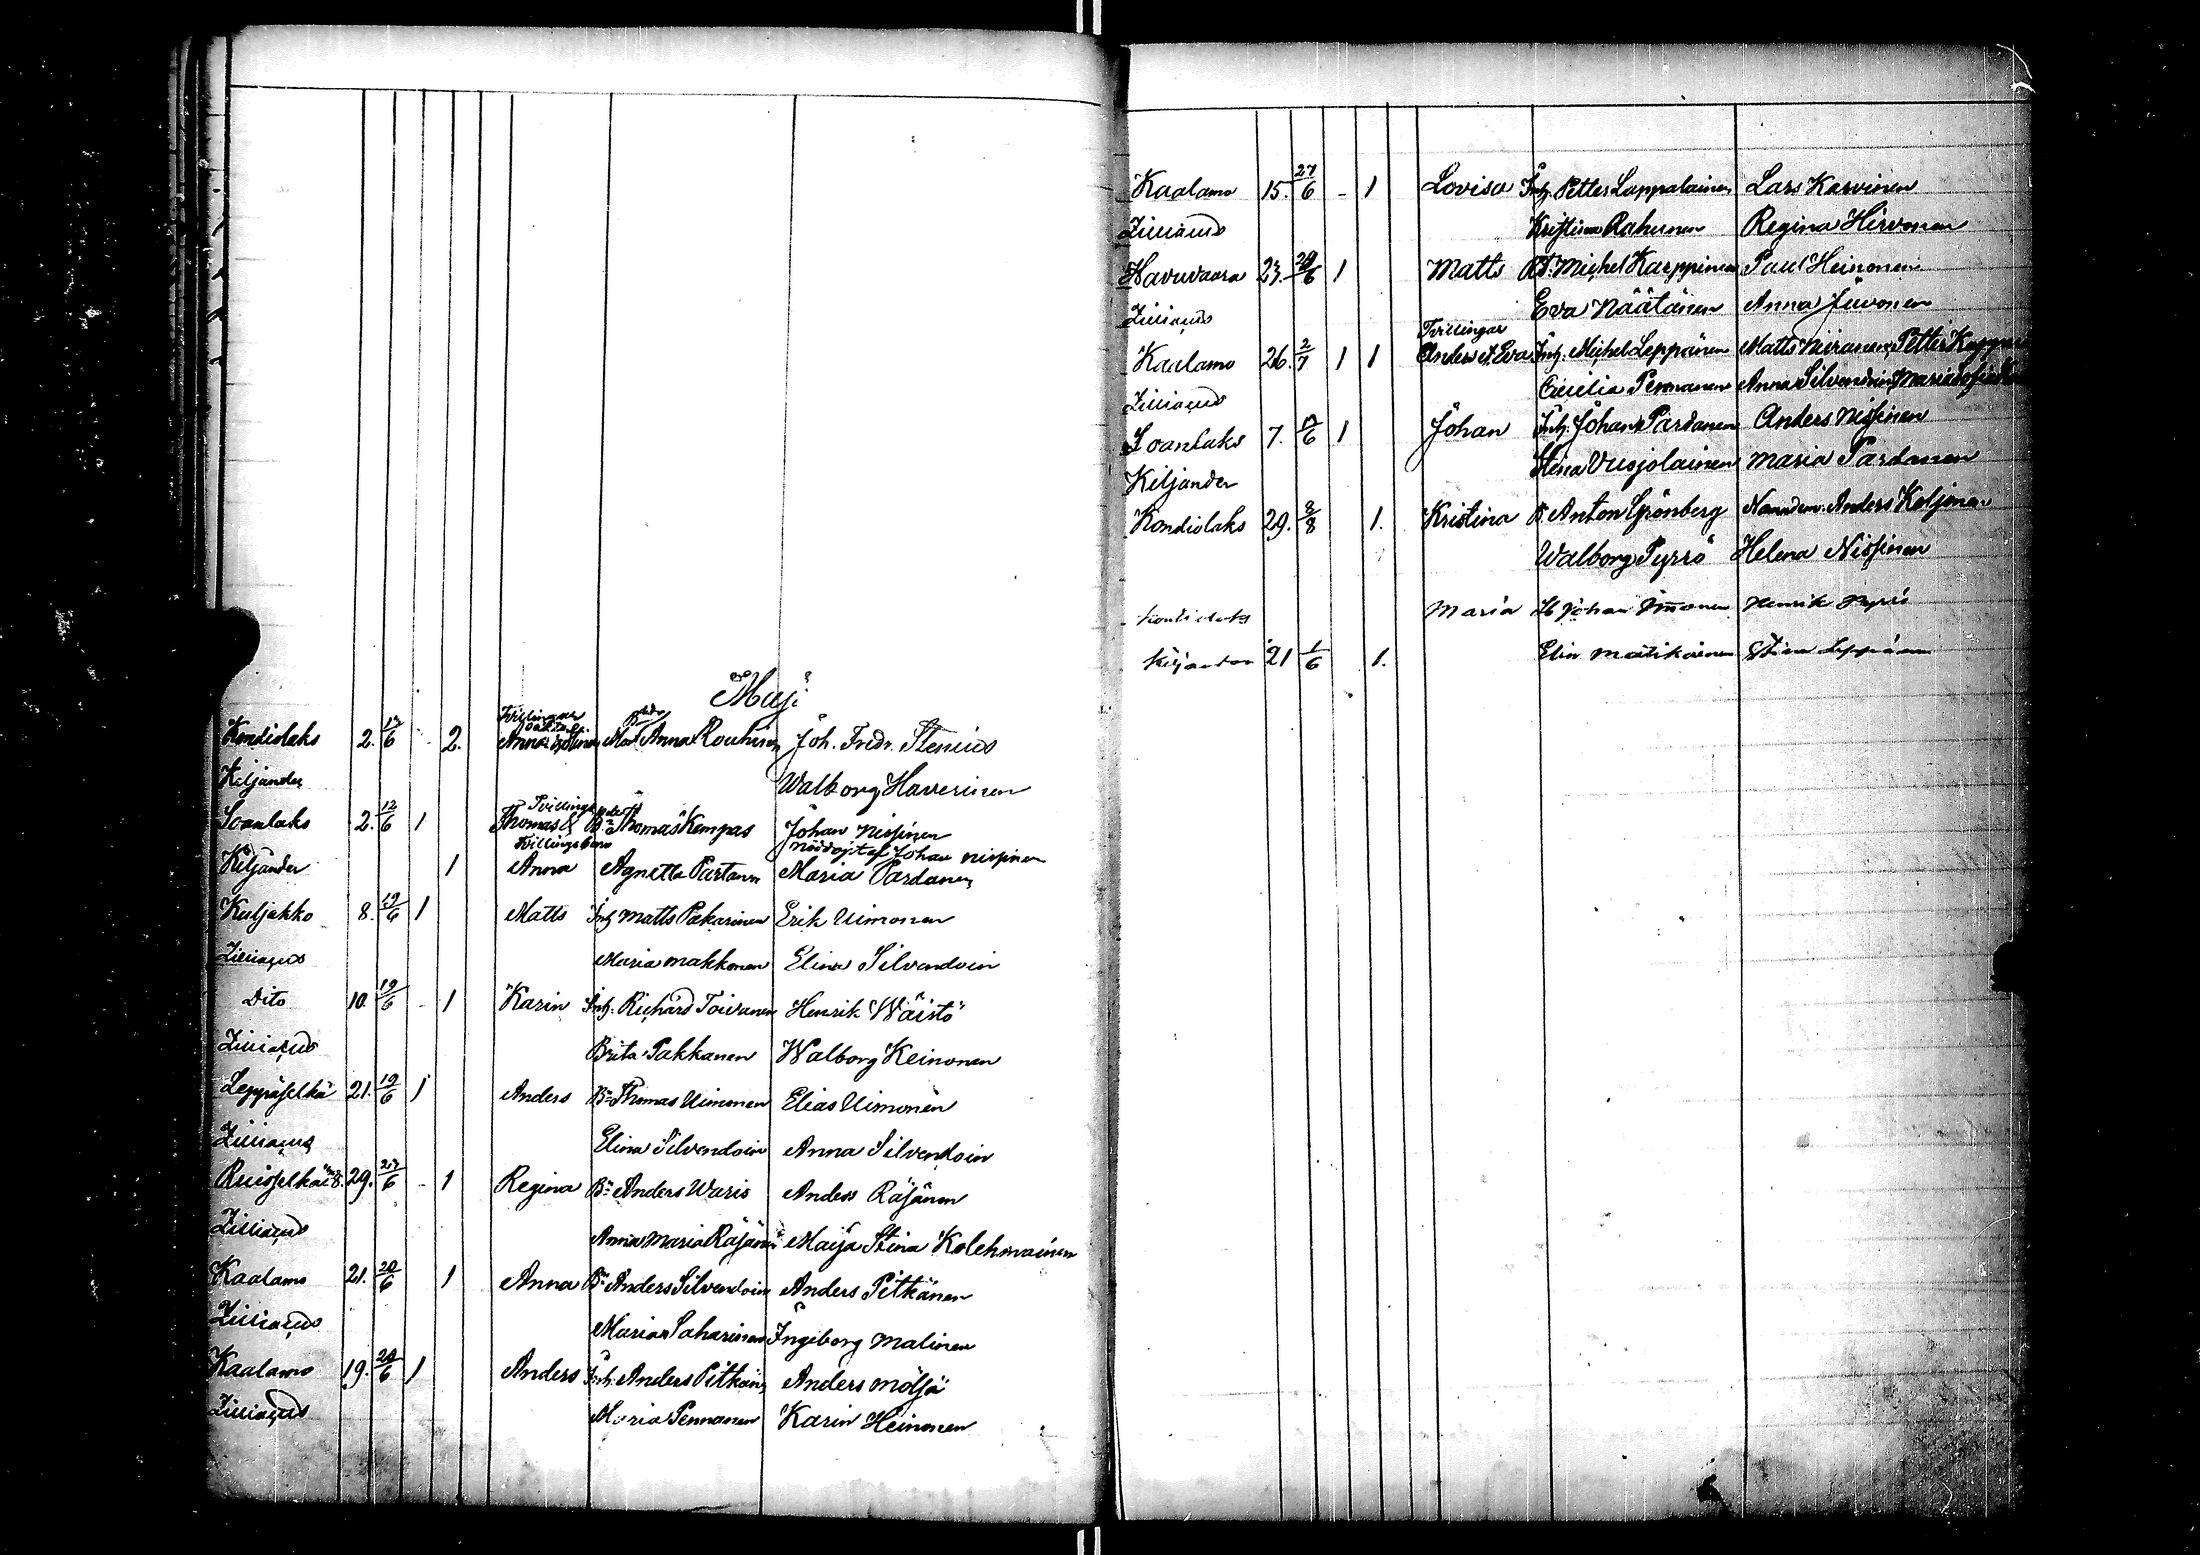 Maji
Tvillingar oäkta
Kondiolaks 2. 12/6 2. Anna Rouhin Joh. Fredr. Stenius
Kiljander Walborg Haverinen
Tvillings
Soanlaks 2. 12/6 1 Thomas & Bn Thomas Kempas Johan Nissinen
Tvillingsbarn nöddöpt af Johan Nissinen
Kiljander 1 Anna Agnetta Partanen Maria Pardanen
Kuljakko 8. 19/6 1 Matts Inh Matts Pakarinen Erik Uimonen
Zilliacus Maria Makkonen Elina Silvendoin
Dito 10. 19/6 - 1 Karin Inh. Richard Toivanen Henrik Wäistö
Zilliacus Brita Pakkanen Walborg Keinonen
Leppäselkä 21. 19/6 1 Anders Bn Thomas Uimonen Elias Uimonen
Zilliacus Elina Silvendoin Anna Silvendoin
Ruisselkä 29. 27/6 - 1 Regina Bn Anders Waris Anders Räsänen
Zilliacus Anna Maria Räsänen Maija Stina Kolehmainen
Kaalamo 21. 20/6 1 Anna Bn Anders Silvendoin Anders Pitkänen
Zilliacus Maria Saharinen Ingeborg Malinen
Kaalamo 19. 20/6 1 Anders Inh. Anders Pitkän Anders Mölsä
Zilliacus Maria Pennanen Karin Heinonen
Kaalamo 15. 27/6 - 1 Lovisa Inh. Petter Lappalainen Lars Karvinen
Zilliacus Kristina Rahunen Regina Hirvonen
Havuvaara 23. 29/6 1 Matts Michel Karppinen Paul Heinonen
Zilliacus Eva Näätänen Anna Juvonen
Tvillingar
Kaalamo 26. 2/7 1 1 Anders & Eva Inh. Michel Leppänen Matts Niiranen, Petter
Zilliacus Cecilia Pennanen Anna Silvendoin, Maria
Soanlaks 7. 12/6 1 Johan Inh. Johan Pardanen Anders Nissinen
Kiljander Stina Vusjolainen Maria Pardanen
Kondiolaks 29. 8/8 1. Kristina B. Anton Grönberg Nämdem. Anders Koljonen
Walborg Pyrrö Helena Nissinen
Kondiolaks Maria Johan Immonen Henrik
Kiljander 21 1/6 1. Elin Mätikäinen Stina Leppänen